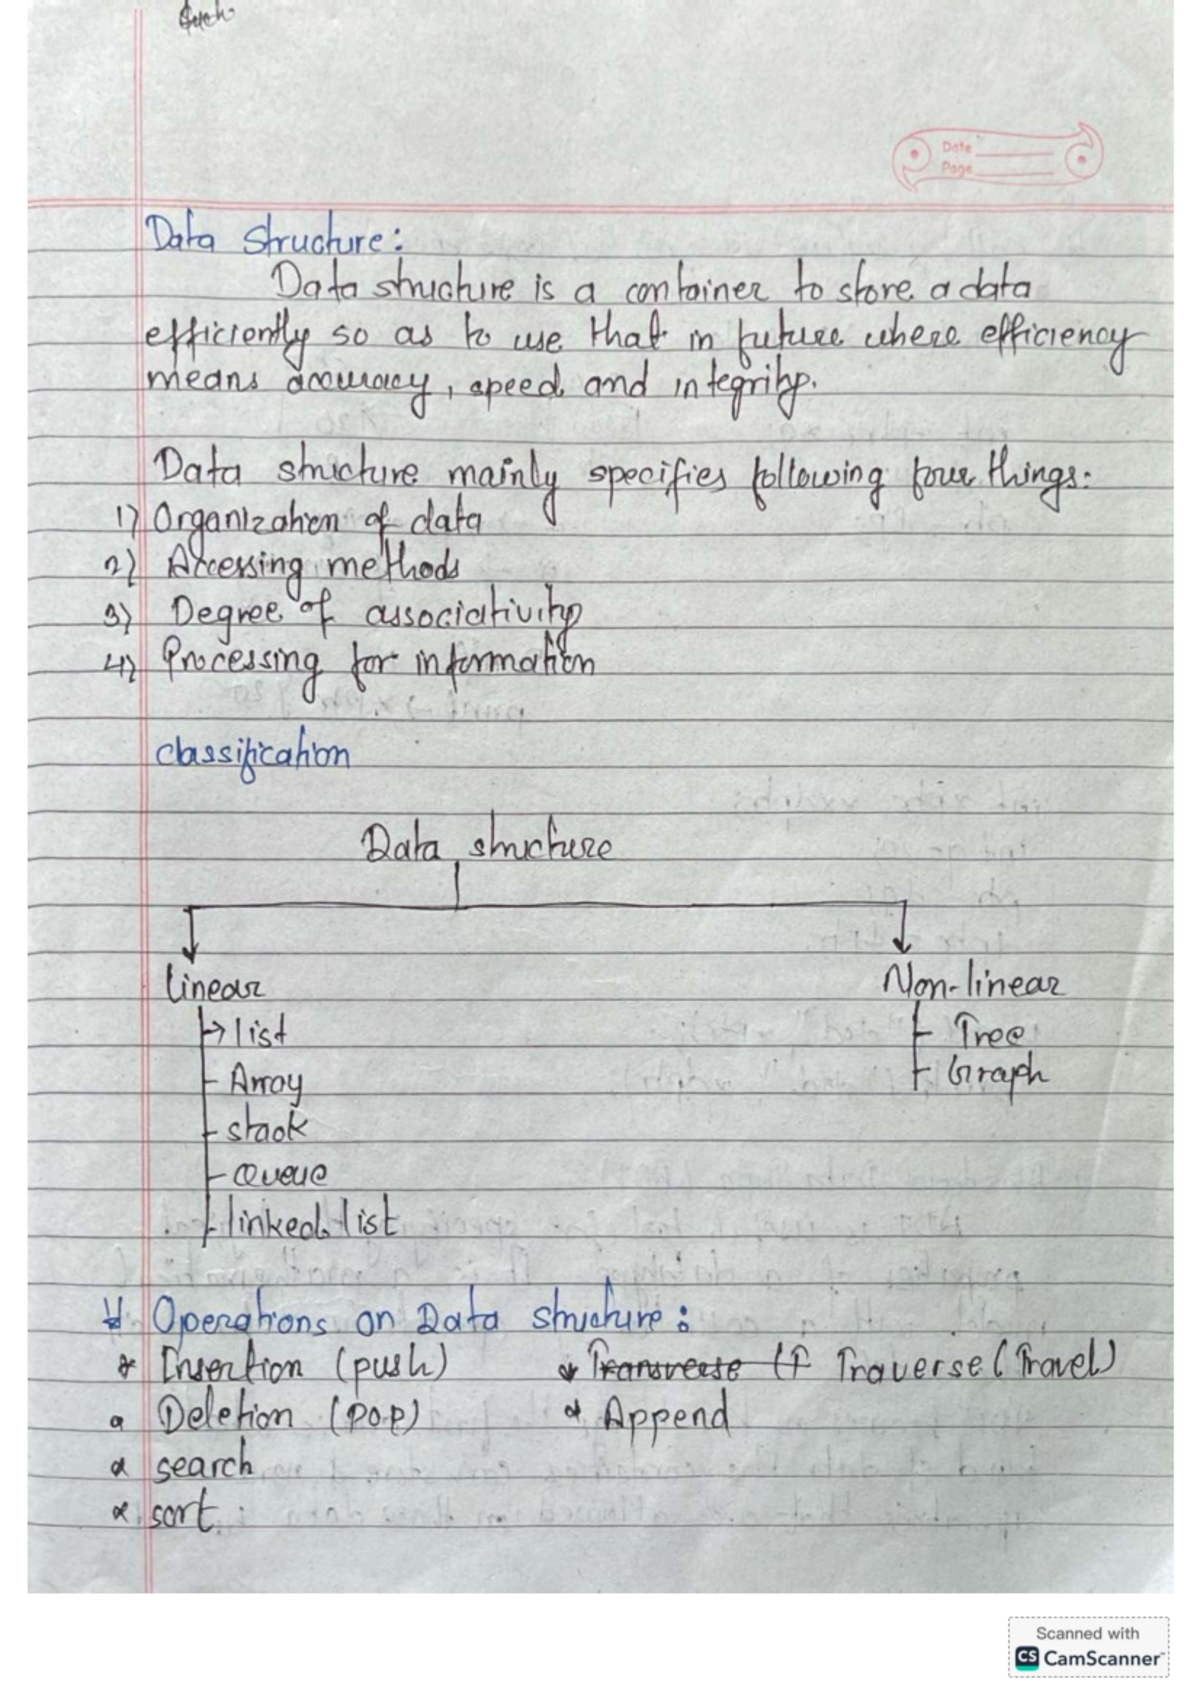 Date
Page
Data Structure:
Data structure is a container to store a data
efficiently so as to use that in future where efficiency
means accuracy, speed and integrity.
Data structure mainly specifies following four things:-
1) Organization of data
2) Accessing methods
3) Degree of associativity
4) Processing for information
classification
Data structure
Linear
Non-linear
list
Tree
Array
Graph
stack
Queue
linked list
Operations on Data structure:
* Insertion (push)
* Transverse (T Traverse (Travel)
* Deletion (pop)
* Append
* search
* sort
Scanned with
CS CamScanner